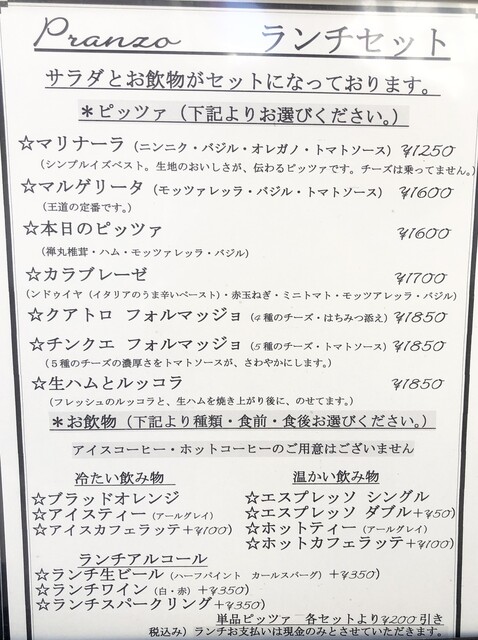 Pranzo ランチセット
サラダとお飲物がセットになっております。
＊ピッツァ（下記よりお選びください。）
☆マリナーラ（ニンニク・バジル・オレガノ・トマトソース） ¥1250
（シンプルイズベスト。生地のおいしさが、伝わるピッツァです。チーズは乗ってません。）
☆マルゲリータ（モッツァレッラ・バジル・トマトソース） ¥1600
（王道の定番です。）
☆本日のピッツァ ¥1600
（禅丸椎茸・ハム・モッツァレッラ・バジル）
☆カラブレーゼ ¥1700
（ンドゥイヤ（イタリアのうま辛いペースト）・赤玉ねぎ・ミニトマト・モッツアレッラ・バジル）
☆クアトロ フォルマッジョ（4種のチーズ・はちみつ添え） ¥1850
☆チンクエ フォルマッジョ（5種のチーズ・トマトソース） ¥1850
（５種のチーズの濃厚さをトマトソースが、さわやかにします。）
☆生ハムとルッコラ ¥1850
（フレッシュのルッコラと、生ハムを焼き上がり後に、のせてます。）
＊お飲物（下記より種類・食前・食後お選びください。）
アイスコーヒー・ホットコーヒーのご用意はございません
冷たい飲み物 温かい飲み物
☆ブラッドオレンジ ☆エスプレッソ シングル
☆アイスティー（アールグレイ） ☆エスプレッソ ダブル+¥50）
☆アイスカフェラッテ+¥100） ☆ホットティー（アールグレイ）
☆ホットカフェラッテ+¥100）
ランチアルコール
☆ランチ生ビール（ハーフパイント カールスバーグ）+¥350）
☆ランチワイン（白・赤）+¥350）
☆ランチスパークリング+¥350）
単品ピッツァ 各セットより¥200引き
税込み）ランチお支払いは現金のみとさせていただきます。